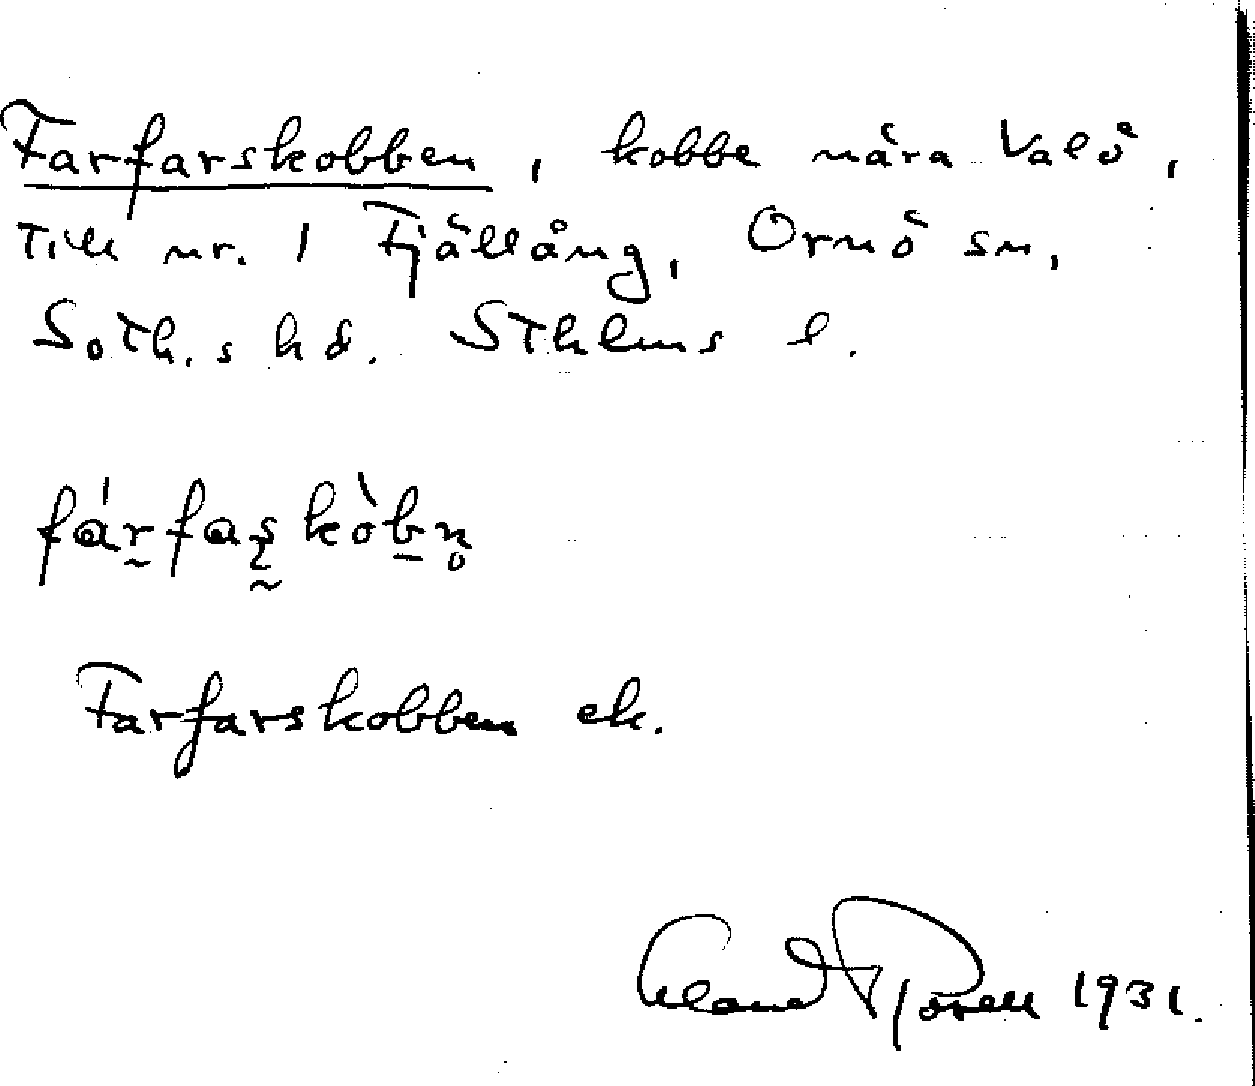 Farfarskobben, kobbe nära Valö,
Till nr. 1 Fjällång, Ornö sn,
Soth.s hd. Sthlms l.
fárfaʂkòbn̥
Farfarskobben ek.
1931.